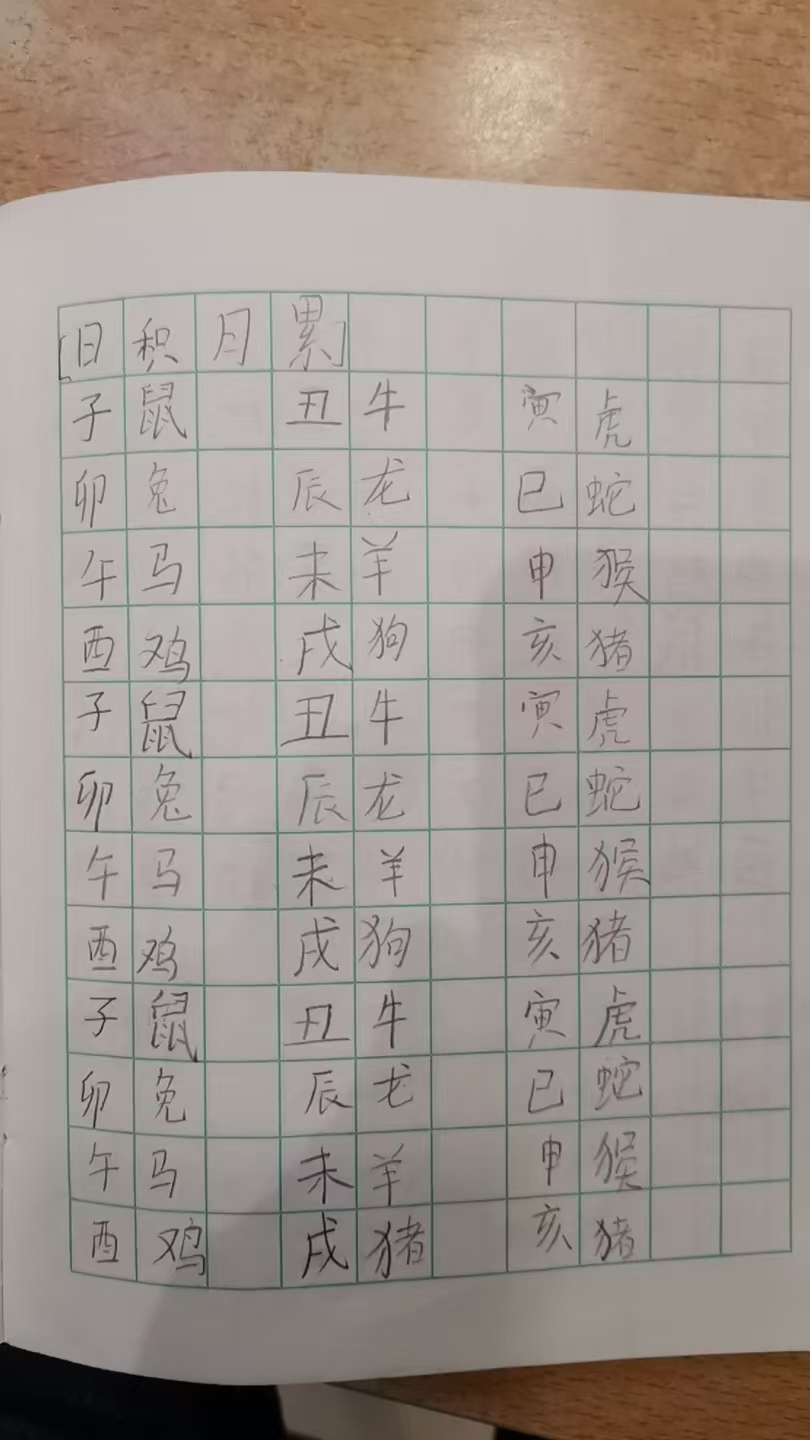 [日积月累]
子鼠 丑牛 寅虎
卯兔 辰龙 巳蛇
午马 未羊 申猴
酉鸡 戌狗 亥猪
子鼠 丑牛 寅虎
卯兔 辰龙 巳蛇
午马 未羊 申猴
酉鸡 戌狗 亥猪
子鼠 丑牛 寅虎
卯兔 辰龙 巳蛇
午马 未羊 申猴
酉鸡 戌猪 亥猪